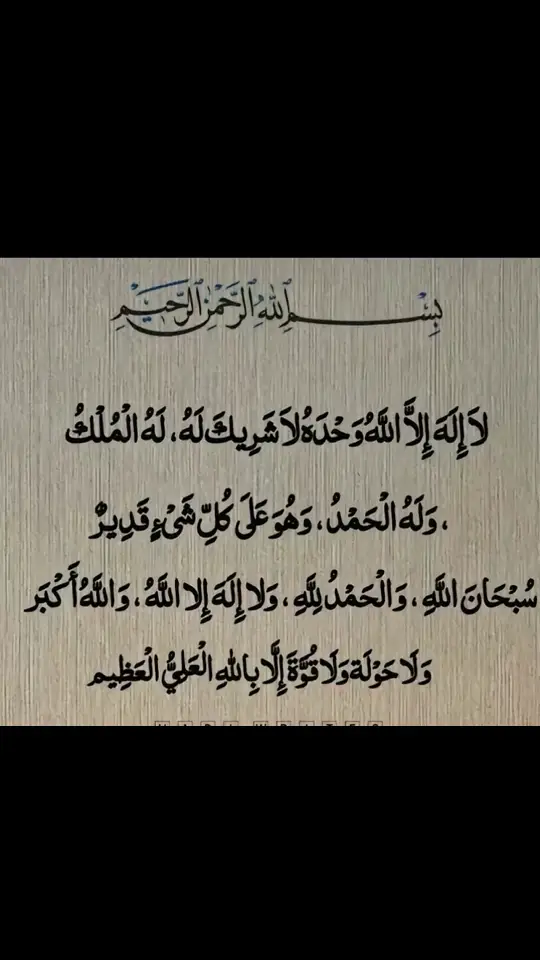 بِسْمِ ٱللَّٰهِ ٱلرَّحْمَٰنِ ٱلرَّحِيمِ
لاَ إِلَهَ إِلاَّ اللَّهُ وَحْدَهُ لاَ شَرِيكَ لَهُ، لَهُ الْمُلْكُ
، وَلَهُ الْحَمْدُ، وَهُوَ عَلَى كُلِّ شَىْءٍ قَدِيرٌ
سُبْحَانَ اللَّهِ، وَالْحَمْدُ لِلَّهِ، وَلا إِلَهَ إِلا اللَّهُ، وَاللَّهُ أَكْبَر
وَلَا حَوْلَة وَلَا قُوَّةَ إِلَّا بِاللهِ الْعَلِيُّ الْعَظِيم